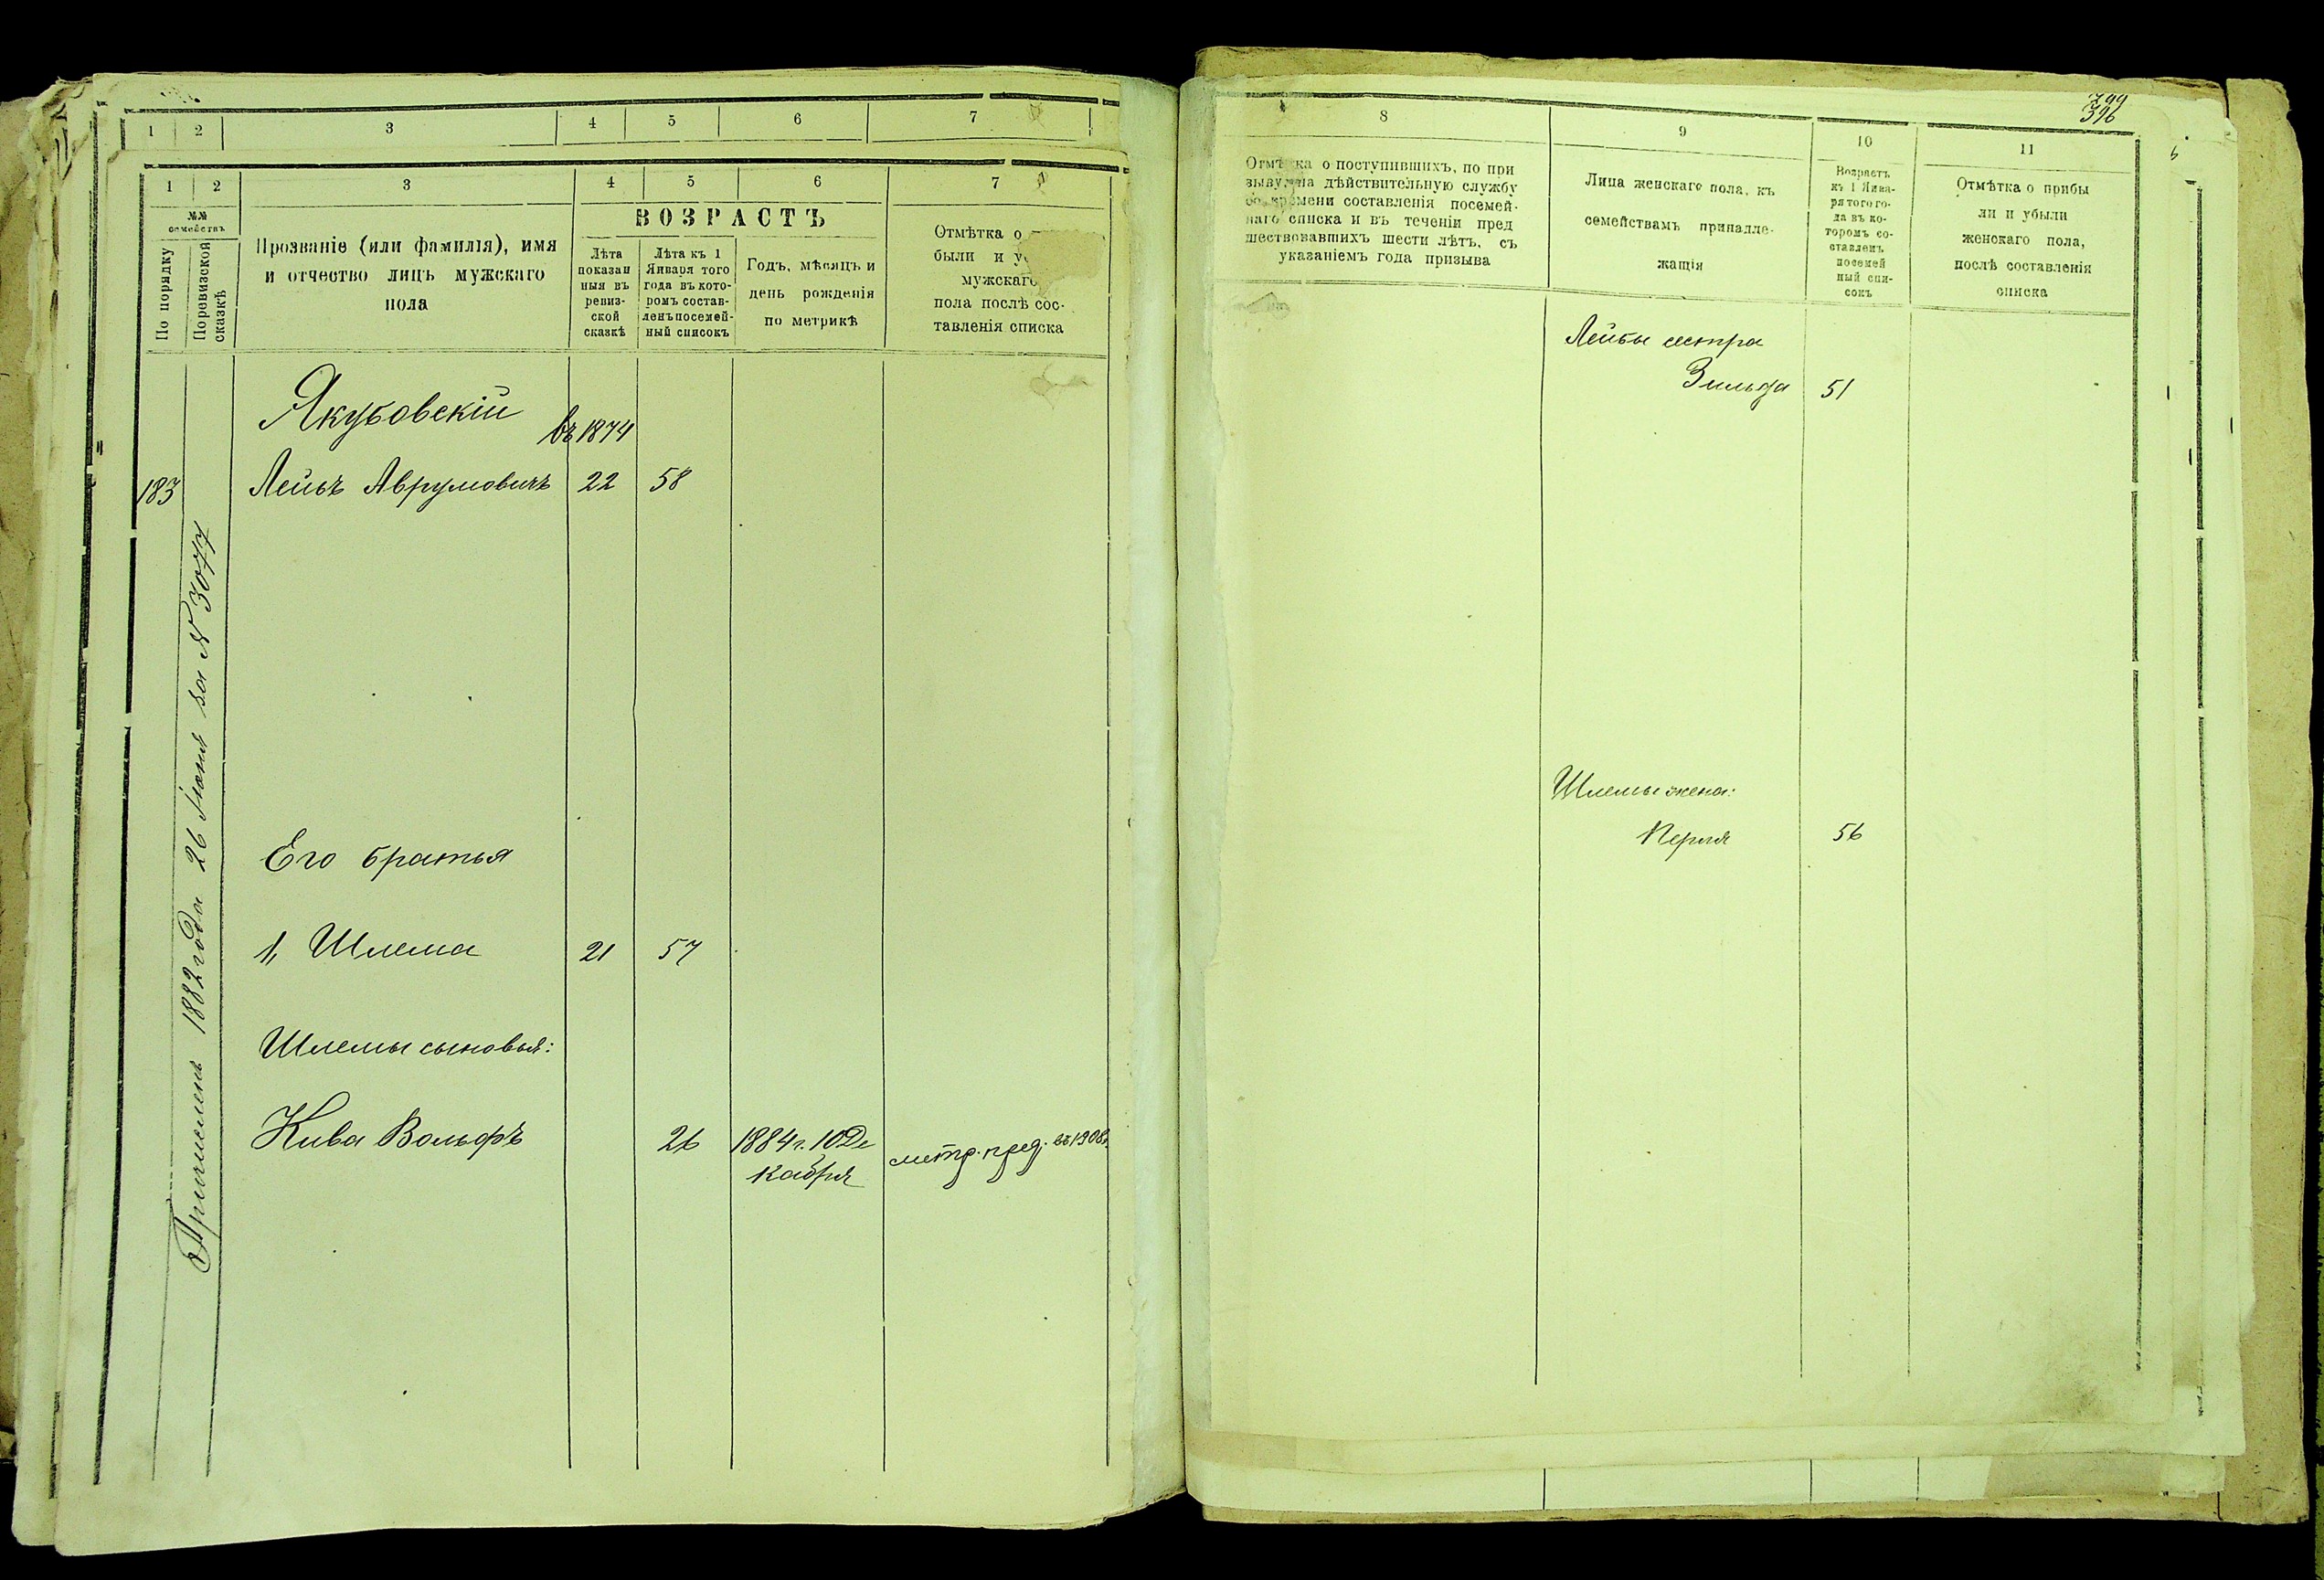 1 2 3 4 5 6 7
1 2 3 4 5 6 7
№№ семействъ
По порядку
По ревизской сказкѣ
Прозваніе (или фамилія), имя
и отчество лицъ мужскаго
пола
ВОЗРАСТЪ
Лѣта
показан
ныя въ
ревиз-
ской
сказкѣ
Лѣта къ 1
Января того
года въ кото-
ромъ состав-
ленъ посемей-
ный списокъ
Годъ, мѣсяцъ и
день рожденія
по метрикѣ
Отмѣтка о
были и у
мужскаго
пола послѣ сос-
тавленія списка
Якубовскій
въ 1874
183 Лейбъ Аврумовичъ 22 58
Причисленъ 1882 года 26 Іюня за № 3077
Его братья
1, Шлема 21 57
Шлемы сыновья:
Кива Вольфъ 26 1884 г. 10 Де
кабря
метр. пред. въ 1908 г.
799
396
8 9 10 11
Отмѣтка о поступившихъ, по при
зыву, на дѣйствительную службу
до времени составленія посемей-
наго списка и въ теченіи пред
шествовавшихъ шести лѣтъ, съ
указаніемъ года призыва
Лица женскаго пола, къ
семействамъ принадле-
жащія
Возрастъ
къ 1 Янва-
ря того го-
да въ ко-
торомъ со-
ставленъ
посемей
ный спи-
сокъ
Отмѣтка о прибы
ли и убыли
женскаго пола,
послѣ составленія
списка
Лейбы сестра
Зильда 51
Шлемы жена:
Перля 56